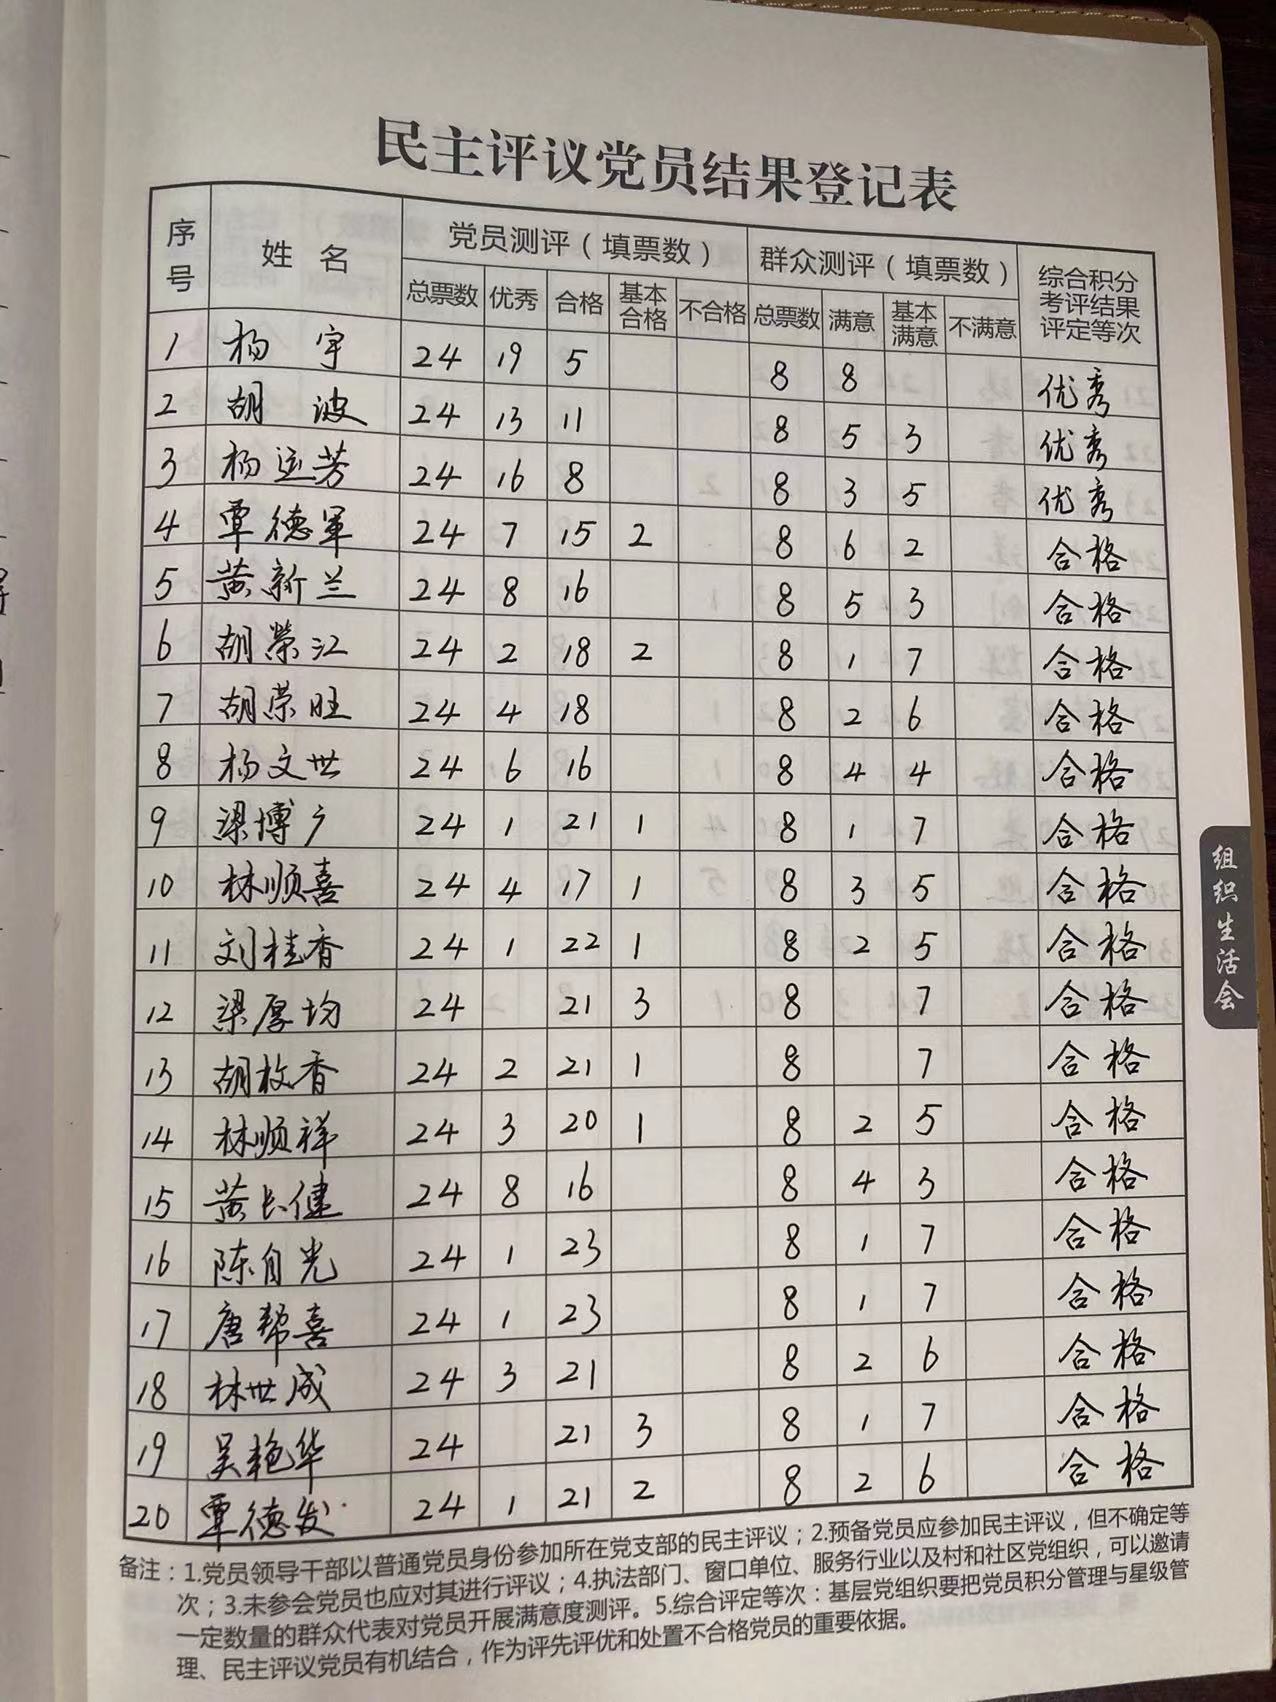 民主评议党员结果登记表
序号 姓 名 党员测评（填票数） 群众测评（填票数） 综合积分考评结果评定等次
总票数 优秀 合格 基本合格 不合格 总票数 满意 基本满意 不满意
1 杨宇 24 19 5 8 8 优秀
2 胡波 24 13 11 8 5 3 优秀
3 杨运芳 24 16 8 8 3 5 优秀
4 覃德军 24 7 15 2 8 6 2 合格
5 黄新兰 24 8 16 8 5 3 合格
6 胡荣江 24 2 18 2 8 1 7 合格
7 胡荣旺 24 4 18 8 2 6 合格
8 杨文世 24 6 16 8 4 4 合格
9 梁博广 24 1 21 1 8 1 7 合格
10 林顺喜 24 4 17 1 8 3 5 合格
11 刘桂香 24 1 22 1 8 2 5 合格
12 梁厚均 24 21 3 8 7 合格
13 胡枚香 24 2 21 1 8 7 合格
14 林顺祥 24 3 20 1 8 2 5 合格
15 黄长健 24 8 16 8 4 3 合格
16 陈自光 24 1 23 8 1 7 合格
17 唐帮喜 24 1 23 8 1 7 合格
18 林世成 24 3 21 8 2 6 合格
19 吴艳华 24 21 3 8 1 7 合格
20 覃德发 24 1 21 2 8 2 6 合格
备注：1.党员领导干部以普通党员身份参加所在党支部的民主评议；2.预备党员应参加民主评议，但不确定等
次；3.未参会党员也应对其进行评议；4.执法部门、窗口单位、服务行业以及村和社区党组织，可以邀请
一定数量的群众代表对党员开展满意度测评。5.综合评定等次：基层党组织要把党员积分管理与星级管
理、民主评议党员有机结合，作为评先评优和处置不合格党员的重要依据。
组织生活会